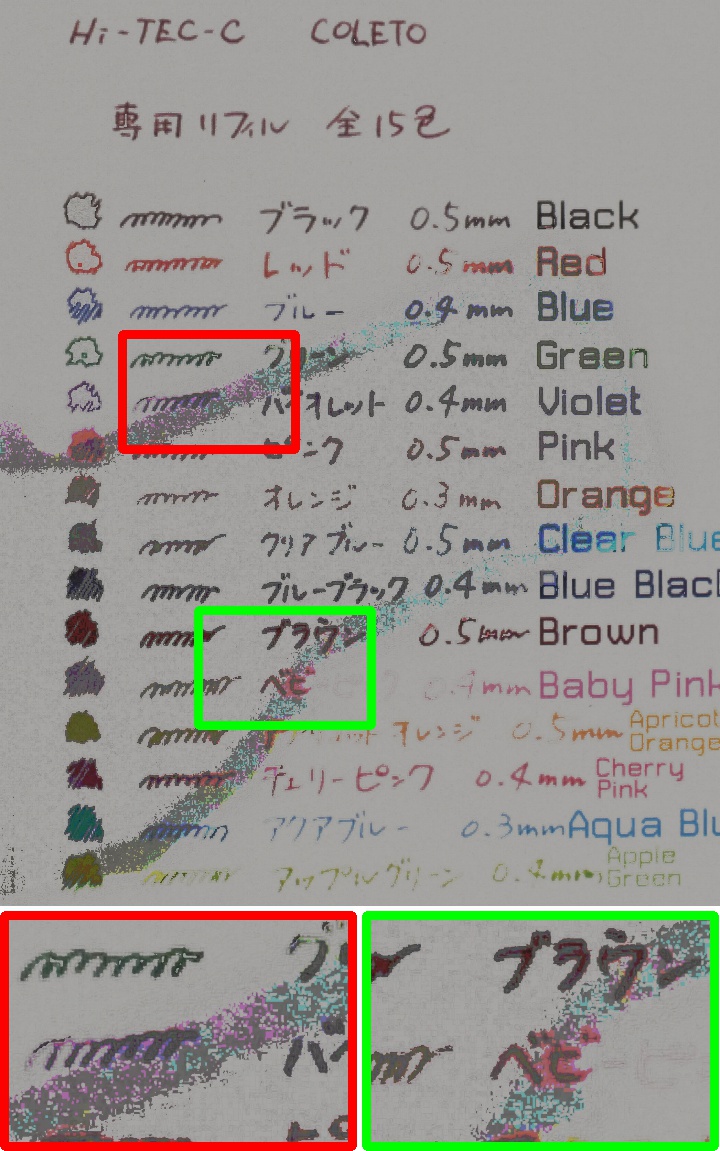 Hi-TEC-C COLETO
専用リフィル 全15色
ブラック 0.5mm Black
レッド 0.5mm Red
ブルー 0.4mm Blue
グリーン 0.5mm Green
バイオレット 0.4mm Violet
ピンク 0.5mm Pink
オレンジ 0.3mm Orange
クリアブルー 0.5mm Clear Blue
ブルーブラック 0.4mm Blue Black
ブラウン 0.5mm Brown
ベビ 0.4mm Baby Pink
オレンジ 0.5mm Apricot Orange
チェリーピンク 0.4mm Cherry Pink
アクアブルー 0.3mm Aqua Blu
アップルグリーン 0.4mm Apple Green